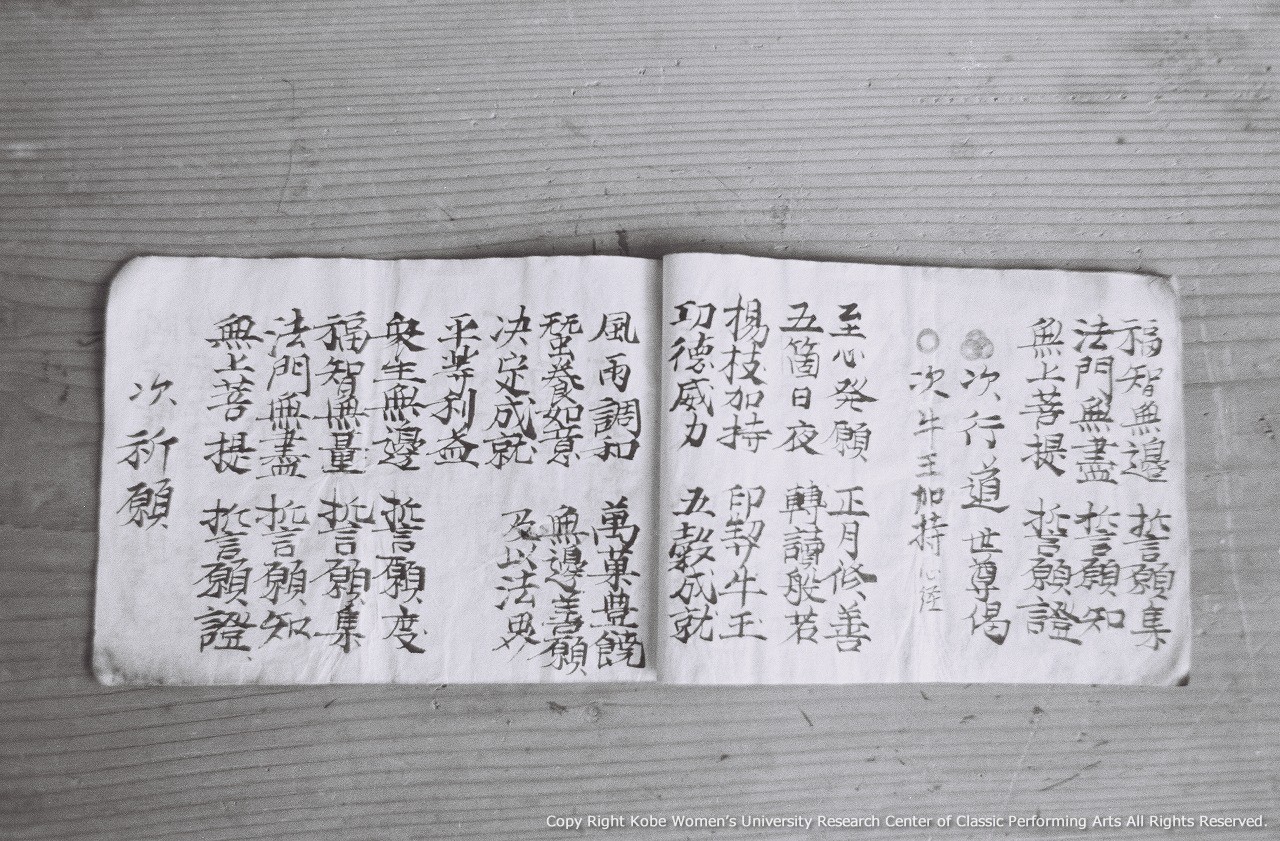 福智無邊 誓願集
法門無盡 誓願知
無上菩提 誓願證
次行道 世尊偈
次牛王加持 心経
至心発願 正月修善
五箇日夜 轉讀般若
楊枝加持 印契牛玉
功德威力 五穀成就
風雨調和 萬菓豊饒
蚕養如意 無邊善願
决定成就 及以法界
平等利益
衆生無邊 誓願度
福智無量 誓願集
法門無盡 誓願知
無上菩提 誓願證
次祈願
Copy Right Kobe Women's University Research Center of Classic Performing Arts All Rights Reserved.